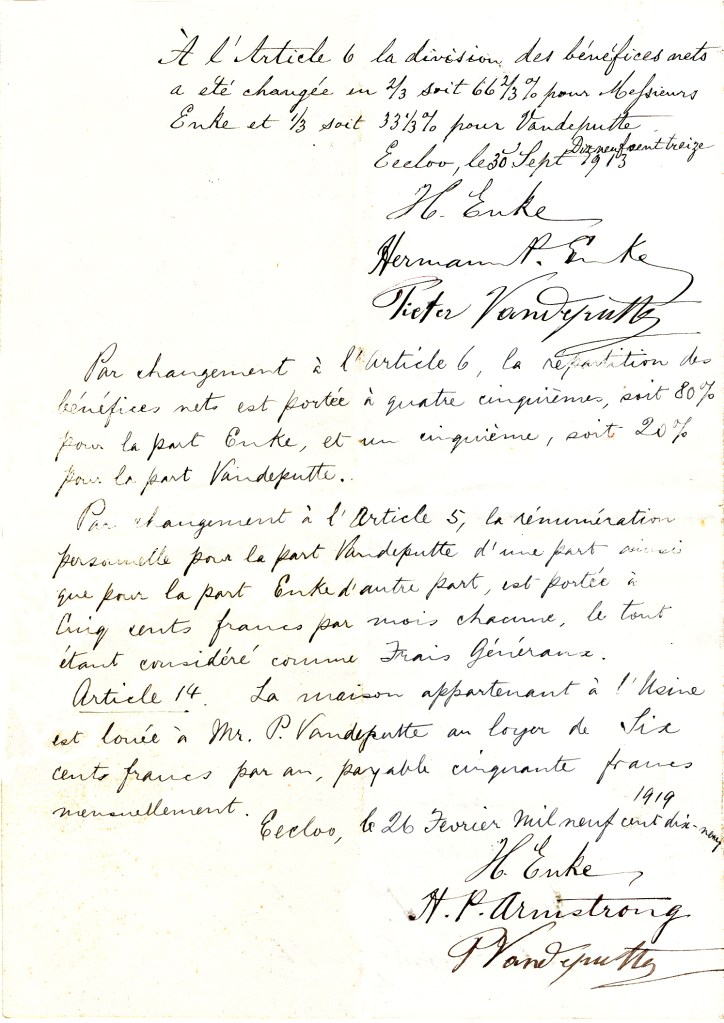 À l'Article 6 la division des bénéfices nets
a été changée en 2/3 soit 66 2/3 % pour Messieurs
Enke et 1/3 soit 33 1/3 % pour Vandeputte
Dix neuf cent treize
Eecloo, le 30 Sept 1913
H. Enke
Hermann P. Enke
Pieter Vandeputte
Par changement à l'Article 6, la répartition des
bénéfices nets est portée à quatre cinquièmes, soit 80%
pour la part Enke, et un cinquième, soit 20%
pour la part Vandeputte.
Par changement à l'Article 5, la rémunération
personnelle pour la part Vandeputte d'une part ainsi
que pour la part Enke d'autre part, est portée à
Cinq cents francs par mois chacune, le tout
étant considéré comme Frais Généraux.
Article 14. La maison appartenant à l'Usine
est louée à Mr. P. Vandeputte au loyer de Six
cents francs par an, payable cinquante francs
mensuellement.
1919
Eecloo, le 26 Fevrier Mil neuf cent dix-neuf
H. Enke
H. P. Armstrong
P Vandeputte